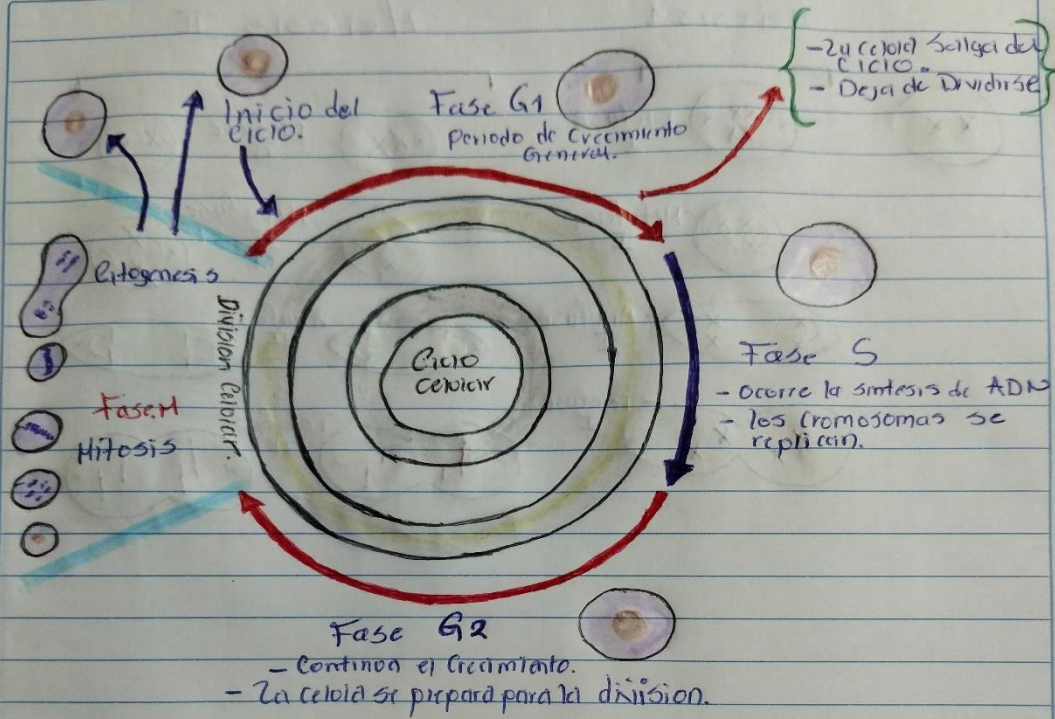 Inicio del
ciclo.
Fase G1
Periodo de Crecimiento
General.
- La celola Salga del
ciclo.
- Deja de Dividirse
Citogenesis
Division Celolar.
Fase M
Mitosis
Ciclo
Celolar
Fase S
- Ocorre la sintesis de ADN
- los Cromosomas se
replican.
Fase G2
- Continua el Crecimiento.
- La celola se prepara para la division.